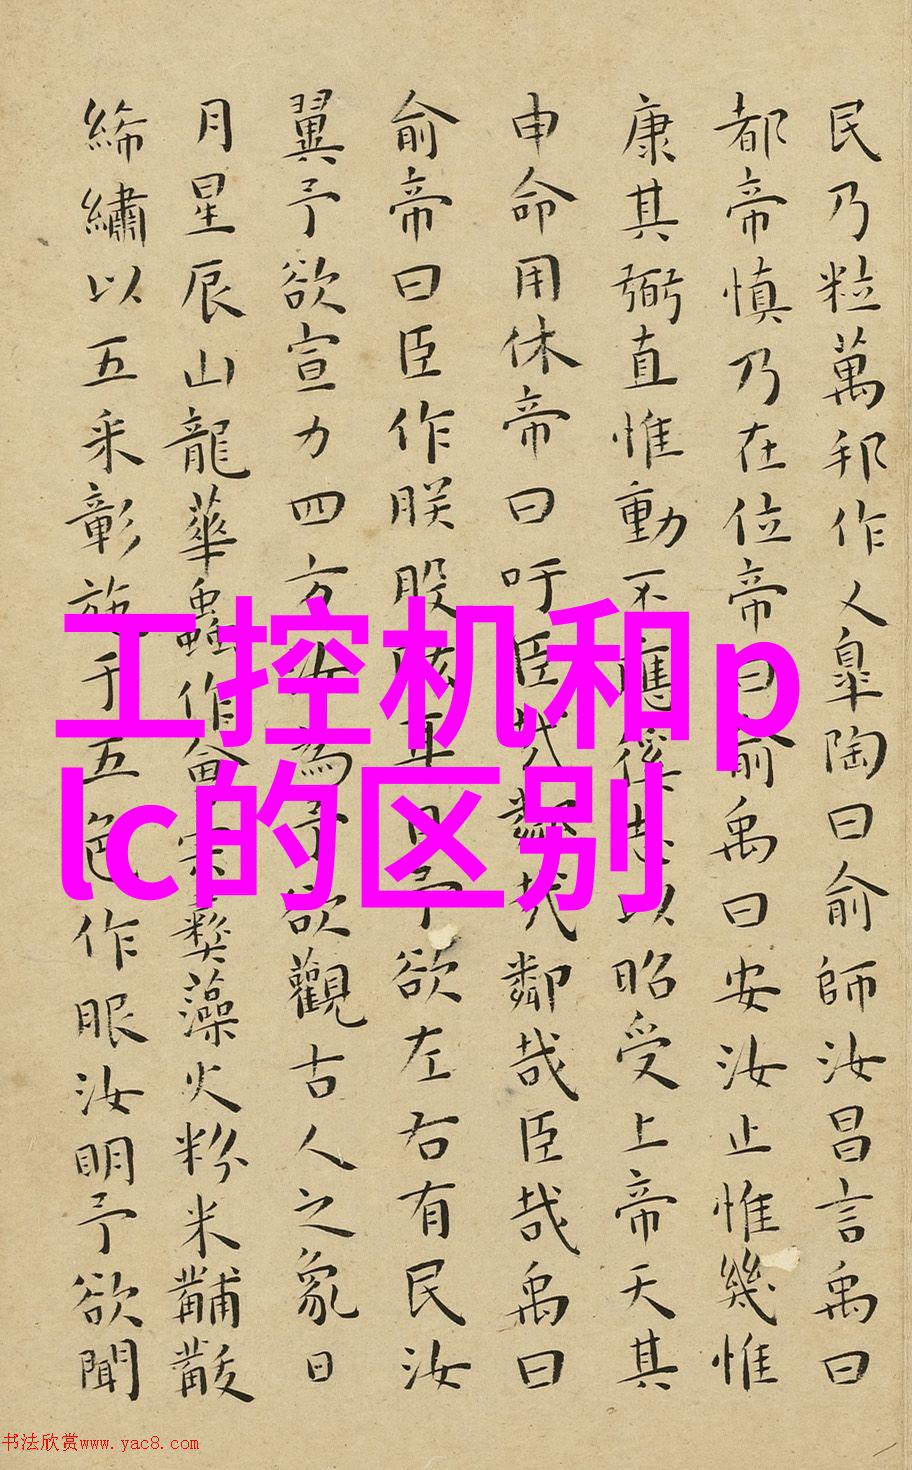 民乃粒萬邦作乂皐陶曰俞師汝昌言禹曰
都帝慎乃在位帝曰俞禹曰安汝止惟幾惟
康其弼直惟動丕應徯志以昭受上帝天其
申命用休帝曰吁臣哉鄰哉鄰哉臣哉禹曰
俞帝曰臣作朕股肱耳目予欲左右有民汝
翼予欲宣力四方汝為予欲觀古人之象日
月星辰山龍華蟲作會宗彝藻火粉米黼黻
絺繡以五采彰施于五色作服汝明予欲聞
工控机和p
lc的区别
书法欣赏www.yac8.com